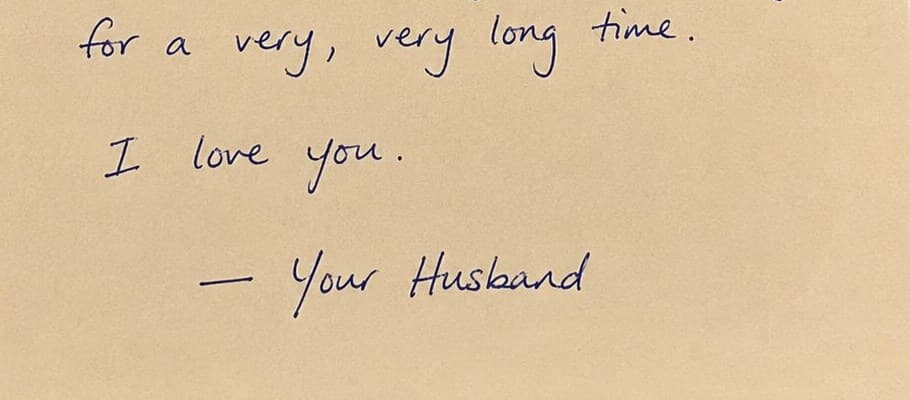 for a very, very long time.
I love you.
— Your Husband